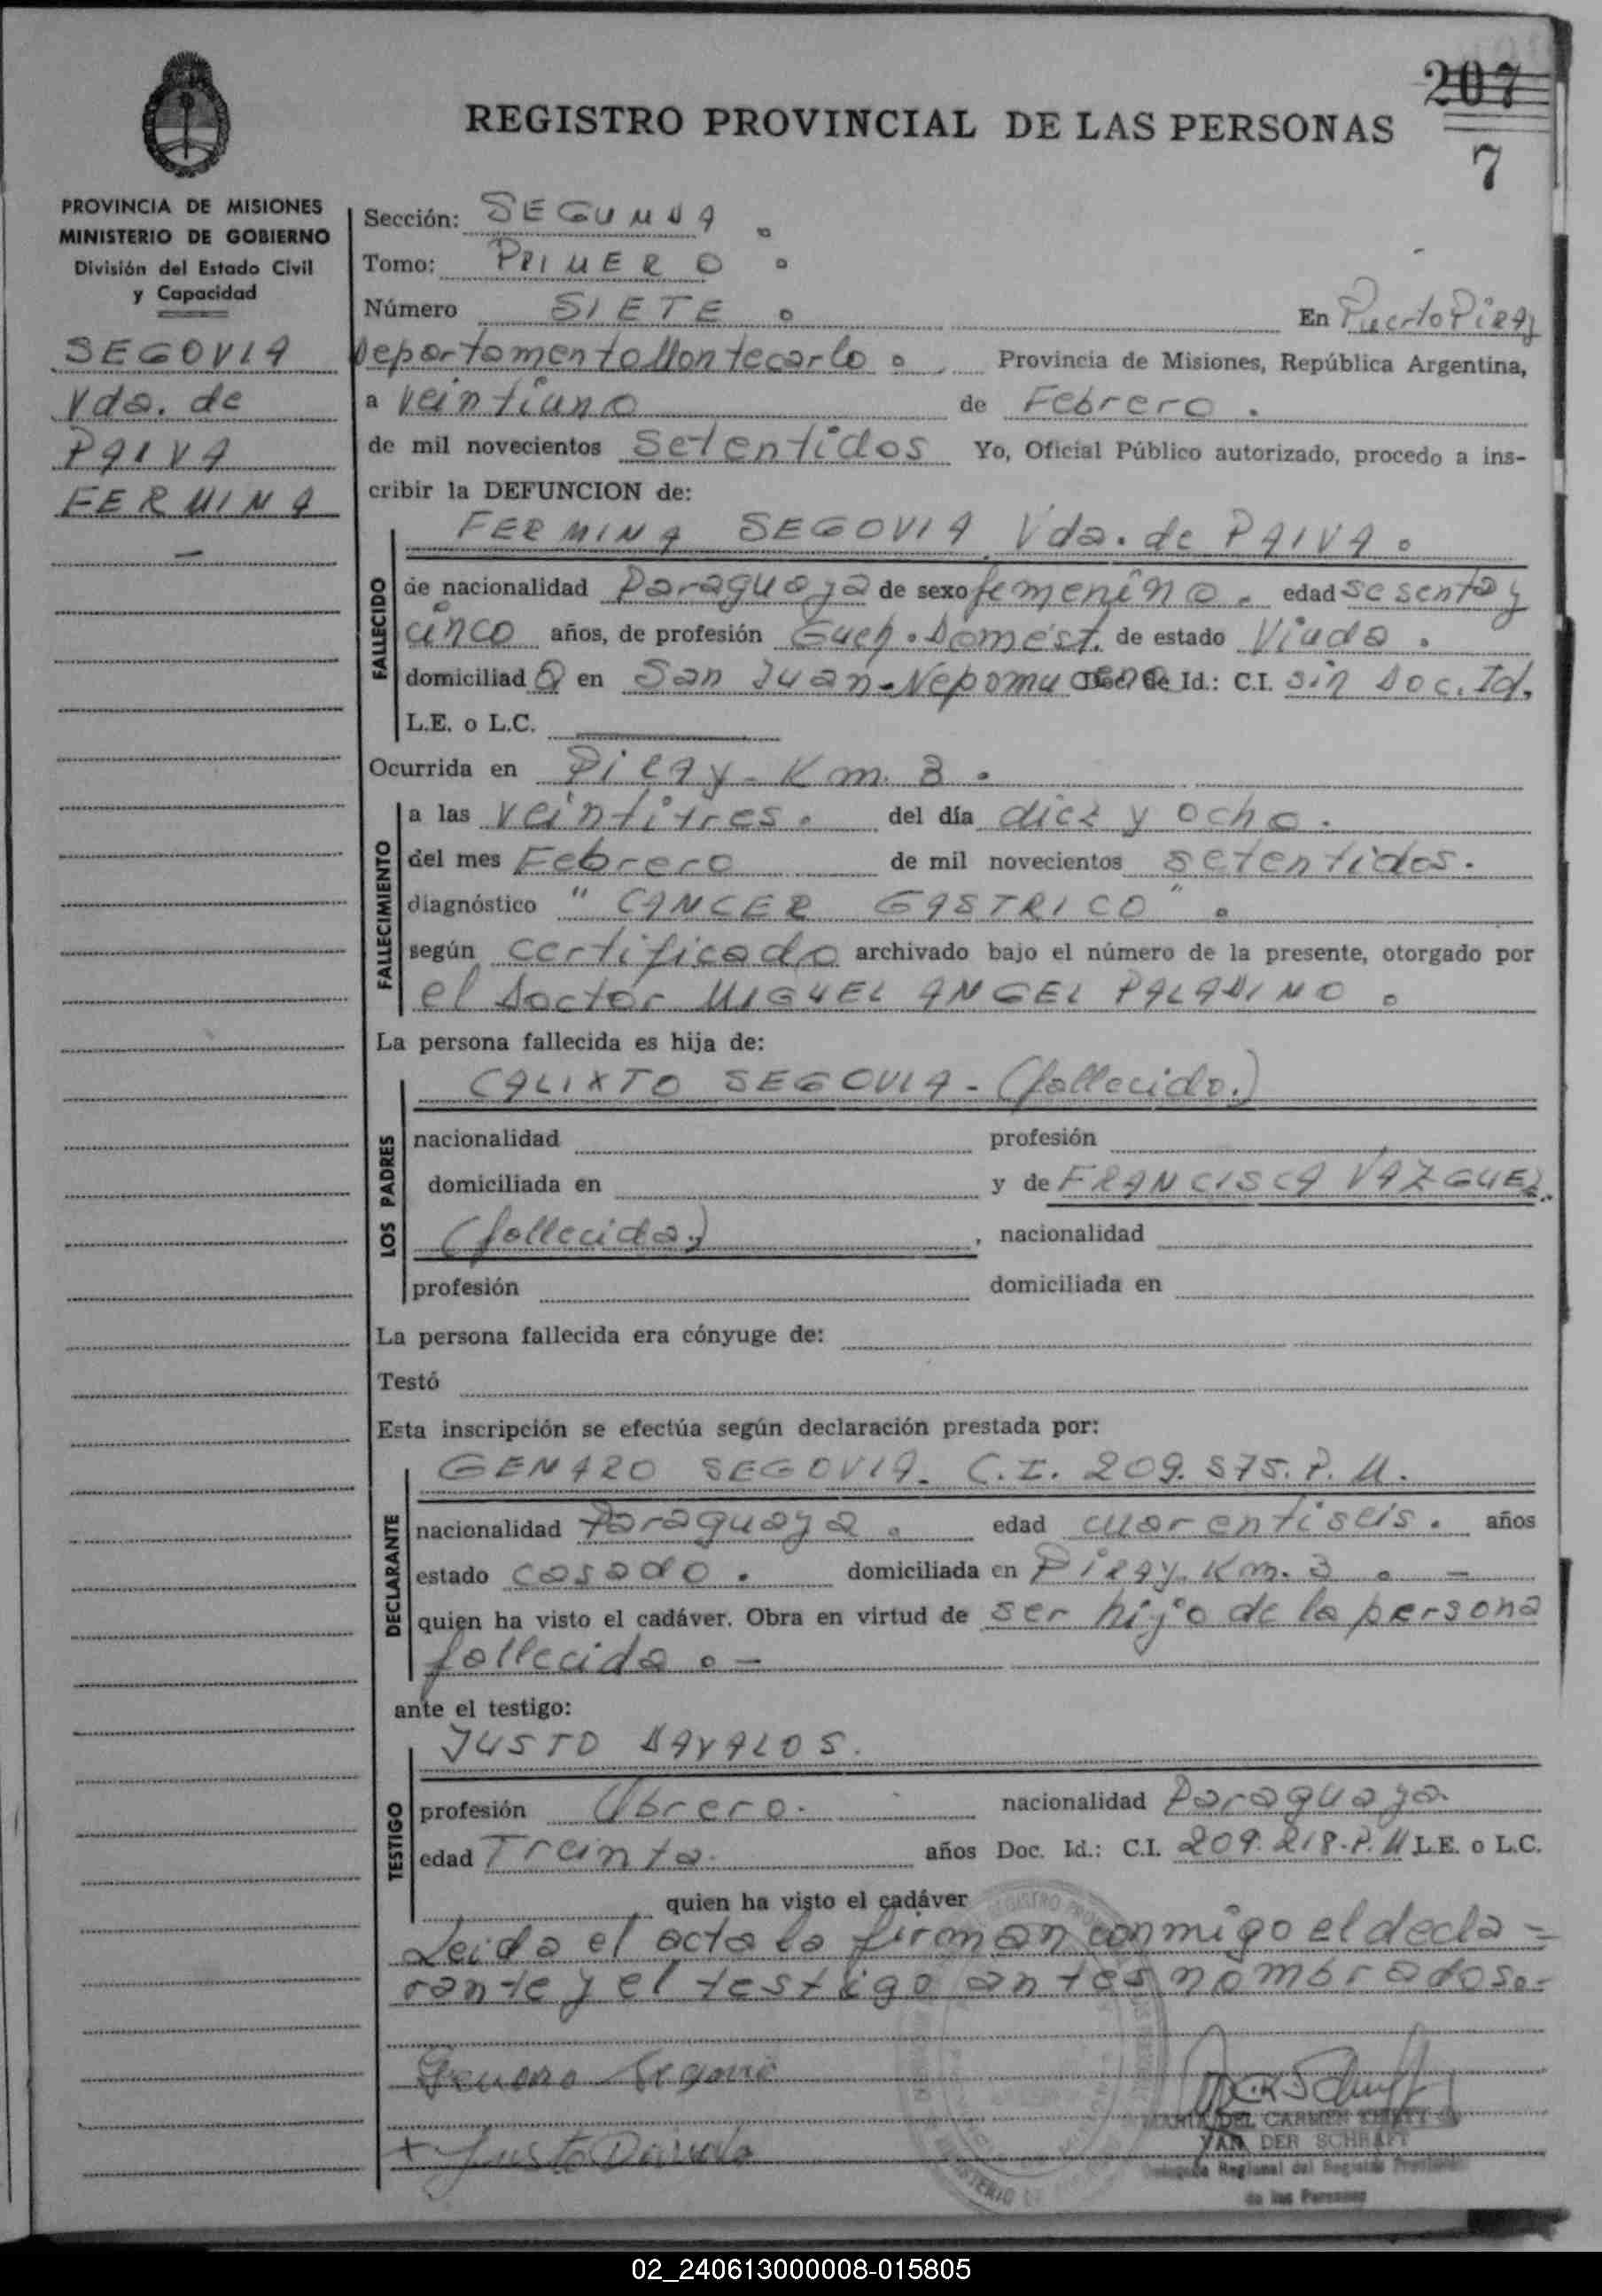 207
7
REGISTRO PROVINCIAL DE LAS PERSONAS
PROVINCIA DE MISIONES
MINISTERIO DE GOBIERNO
División del Estado Civil
y Capacidad
SEGOVIA
Vda. de
PAIVA
FERMINA
Sección: SEGUNDA
Tomo: PRIMERO
Número SIETE En Puerto Piray
Departamento Montecarlo Provincia de Misiones, República Argentina,
a veintiuno de Febrero.
de mil novecientos setentidos Yo, Oficial Público autorizado, procedo a ins-
cribir la DEFUNCION de:
FERMINA SEGOVIA Vda. de PAIVA.
FALLECIDO
de nacionalidad Paraguaya de sexo femenino. edad sesenta y
cinco años, de profesión Queh. Domést. de estado Viuda.
domiciliada en San Juan-Nepomuceno Doc. de Id.: C.I. sin Doc. Id.
L.E. o L.C.
Ocurrida en Piray-Km. 3.
FALLECIMIENTO
a las veintitres. del día diez y ocho.
del mes Febrero de mil novecientos setentidos.
diagnóstico "CANCER GASTRICO".
según certificado archivado bajo el número de la presente, otorgado por
el Doctor MIGUEL ANGEL PALADINO.
La persona fallecida es hija de:
LOS PADRES
CALIXTO SEGOVIA-(fallecido.)
nacionalidad profesión
domiciliada en y de FRANCISCA VAZQUEZ.
(fallecida.), nacionalidad
profesión domiciliada en
La persona fallecida era cónyuge de:
Testó
Esta inscripción se efectúa según declaración prestada por:
DECLARANTE
GENARO SEGOVIA. C.I. 209.575.P.M.
nacionalidad Paraguaya. edad cuarentiseis. años
estado casado. domiciliada en Piray.Km.3.-
quien ha visto el cadáver. Obra en virtud de ser hijo de la persona
fallecida.-
ante el testigo:
TESTIGO
JUSTO DAVALOS.
profesión Obrero. nacionalidad Paraguaya.
edad Treinta. años Doc. Id.: C.I. 209.218.P.M L.E. o L.C.
quien ha visto el cadáver
Leida el acta la firman conmigo el decla=
rante y el testigo antes nombrados.-
Genaro Segovia
MARIA DEL CARMEN
VAN DER SCHRAFT
Delegada Regional del Registro Provincial
de las Personas
+ Justo Davalo
02_240613000008-015805